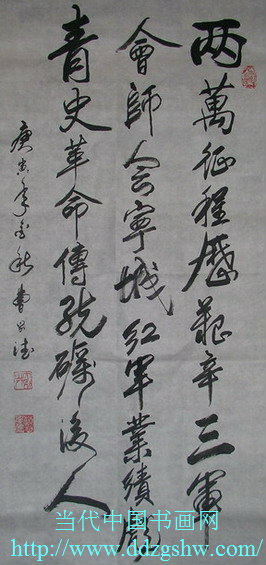 两萬征程歷艱辛三軍
會師会寧城紅軍業績留
青史革命傳統礪後人
庚寅年金秋曹
当代中国书画网
http://www.ddzgshw.com/